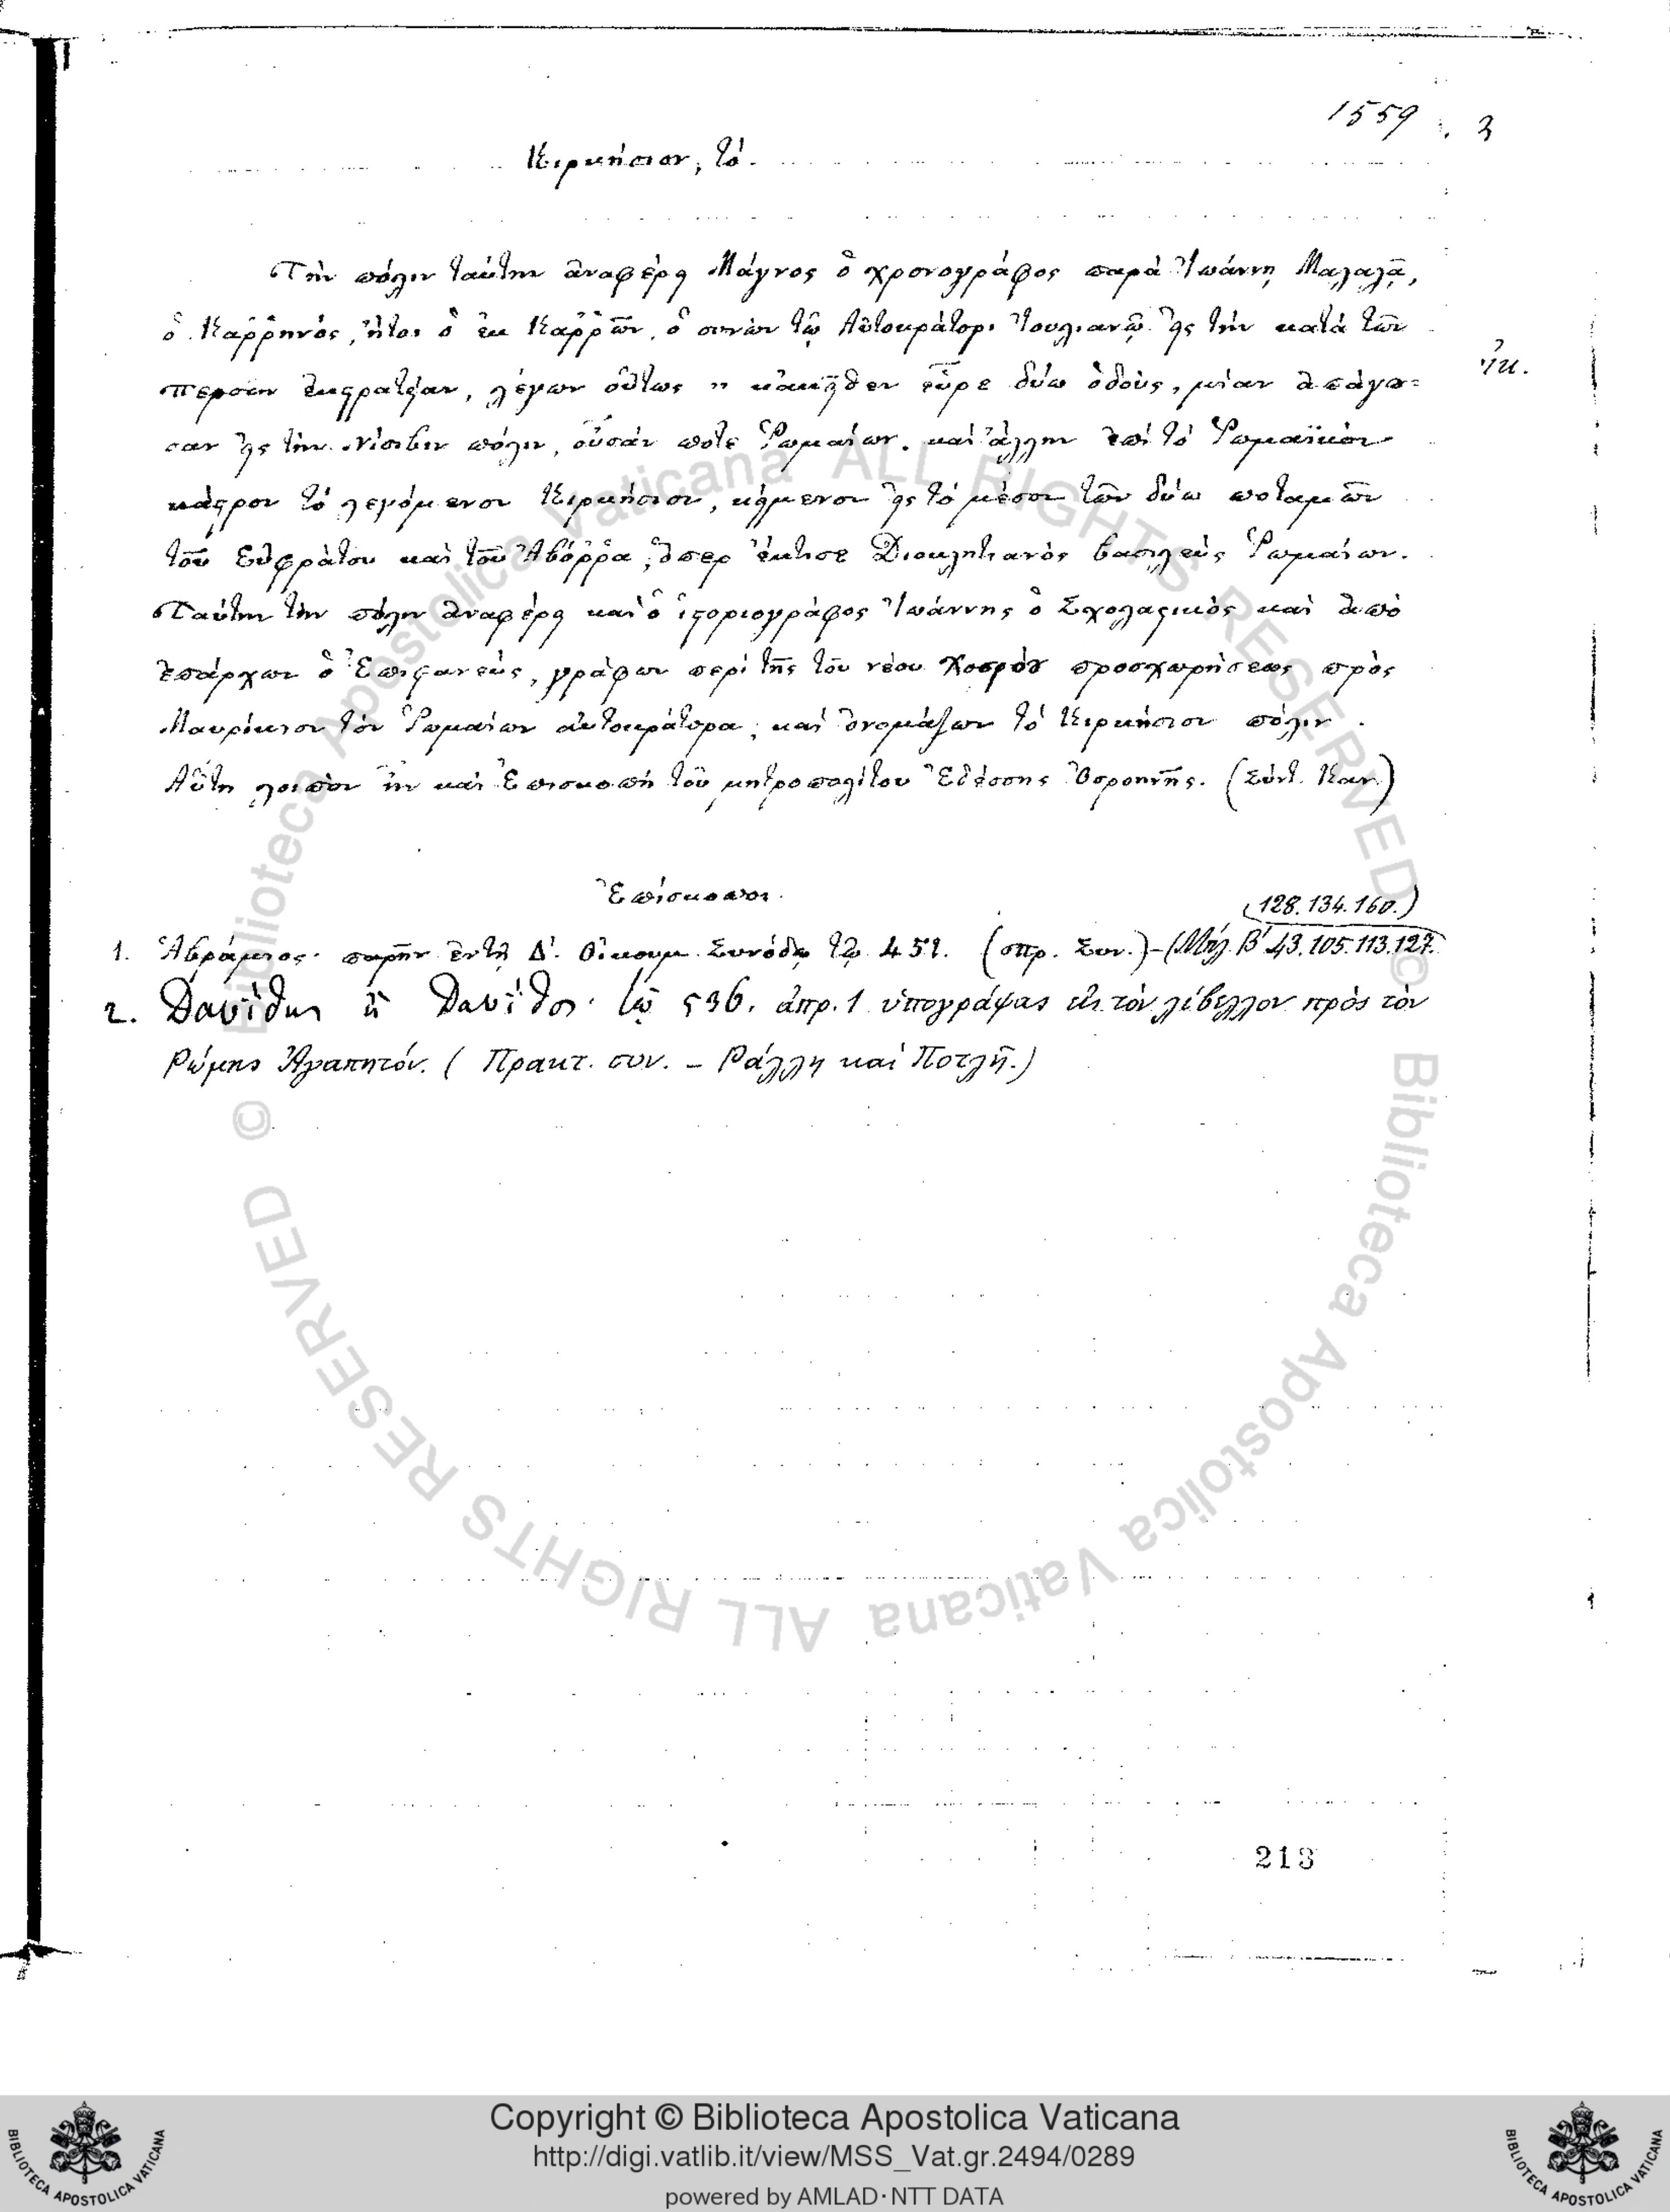 1559 . 3
Κιρκήσιον, τό.
Τὴν πόλιν ταύτην ἀναφέρει Μάγνος ὁ χρονογράφος παρὰ Ἰωάννῃ Μαλαλᾷ,
ὁ Καῤῥηνός, ἤτοι ὁ ἐκ Καῤῥῶν, ὁ συνὼν τῷ Αὐτοκράτορι Ἰουλιανῷ εἰς τὴν κατὰ τῶν
Περσῶν ἐκστρατείαν, λέγων οὕτως „ κἀκεῖθεν εὗρε δύω ὁδούς, μίαν ἀπάγου=
σαν εἰς τὴν Νίσιβιν πόλιν, οὖσάν ποτε Ῥωμαίων. καὶ ἄλλην ἐπὶ τὸ Ῥωμαϊκὸν
κάστρον τὸ λεγόμενον Κιρκήσιον, κείμενον εἰς τὸ μέσον τῶν δύω ποταμῶν
τοῦ Εὐφράτου καὶ τοῦ Ἀβόῤῥα, ὅπερ ἔκτισε Διοκλητιανὸς βασιλεὺς Ῥωμαίων.
Ταύτην τὴν πόλιν ἀναφέρει καὶ ὁ ἱστοριογράφος Ἰωάννης ὁ Σχολαστικὸς καὶ ἀπὸ
ἐπάρχων ὁ Ἐπιφανεύς, γράφων περὶ τῆς τοῦ νέου Χοσρόου προσχωρήσεως πρὸς
Μαυρίκιον τὸν Ῥωμαίων αὐτοκράτορα, καὶ ὀνομάζων τὸ Κιρκήσιον πόλιν.
Αὕτη λοιπὸν ἦν καὶ Ἐπισκοπὴ τοῦ μητροπολίτου Ἐδέσσης Ὀσροηνῆς. (Σύντ. Καν.)
Ἐπίσκοποι.
(128.134.160.)
1. Ἀβράμιος· παρῆν ἐν τῇ Δ΄. Οἰκουμ. Συνόδῳ τῷ 451. (πρ. Συν.) - (Μηλ. Β΄ 43.105.113.127.
2. Δαυίδης ἢ Δαυίδος· τῷ 536. ἀπρ. 1 ὑπογράψας εἰς τὸν λίβελλον πρὸς τὸν
Ῥώμης Ἀγαπητόν. (Πρακτ. συν. - Ράλλη καὶ Ποτλῆ.)
213
© Biblioteca Apostolica Vaticana ALL RIGHTS RESERVED
© Biblioteca Apostolica Vaticana ALL RIGHTS RESERVED
Copyright © Biblioteca Apostolica Vaticana
http://digi.vatlib.it/view/MSS_Vat.gr.2494/0289
powered by AMLAD·NTT DATA
BIBLIOTECA APOSTOLICA VATICANA
BIBLIOTECA APOSTOLICA VATICANA